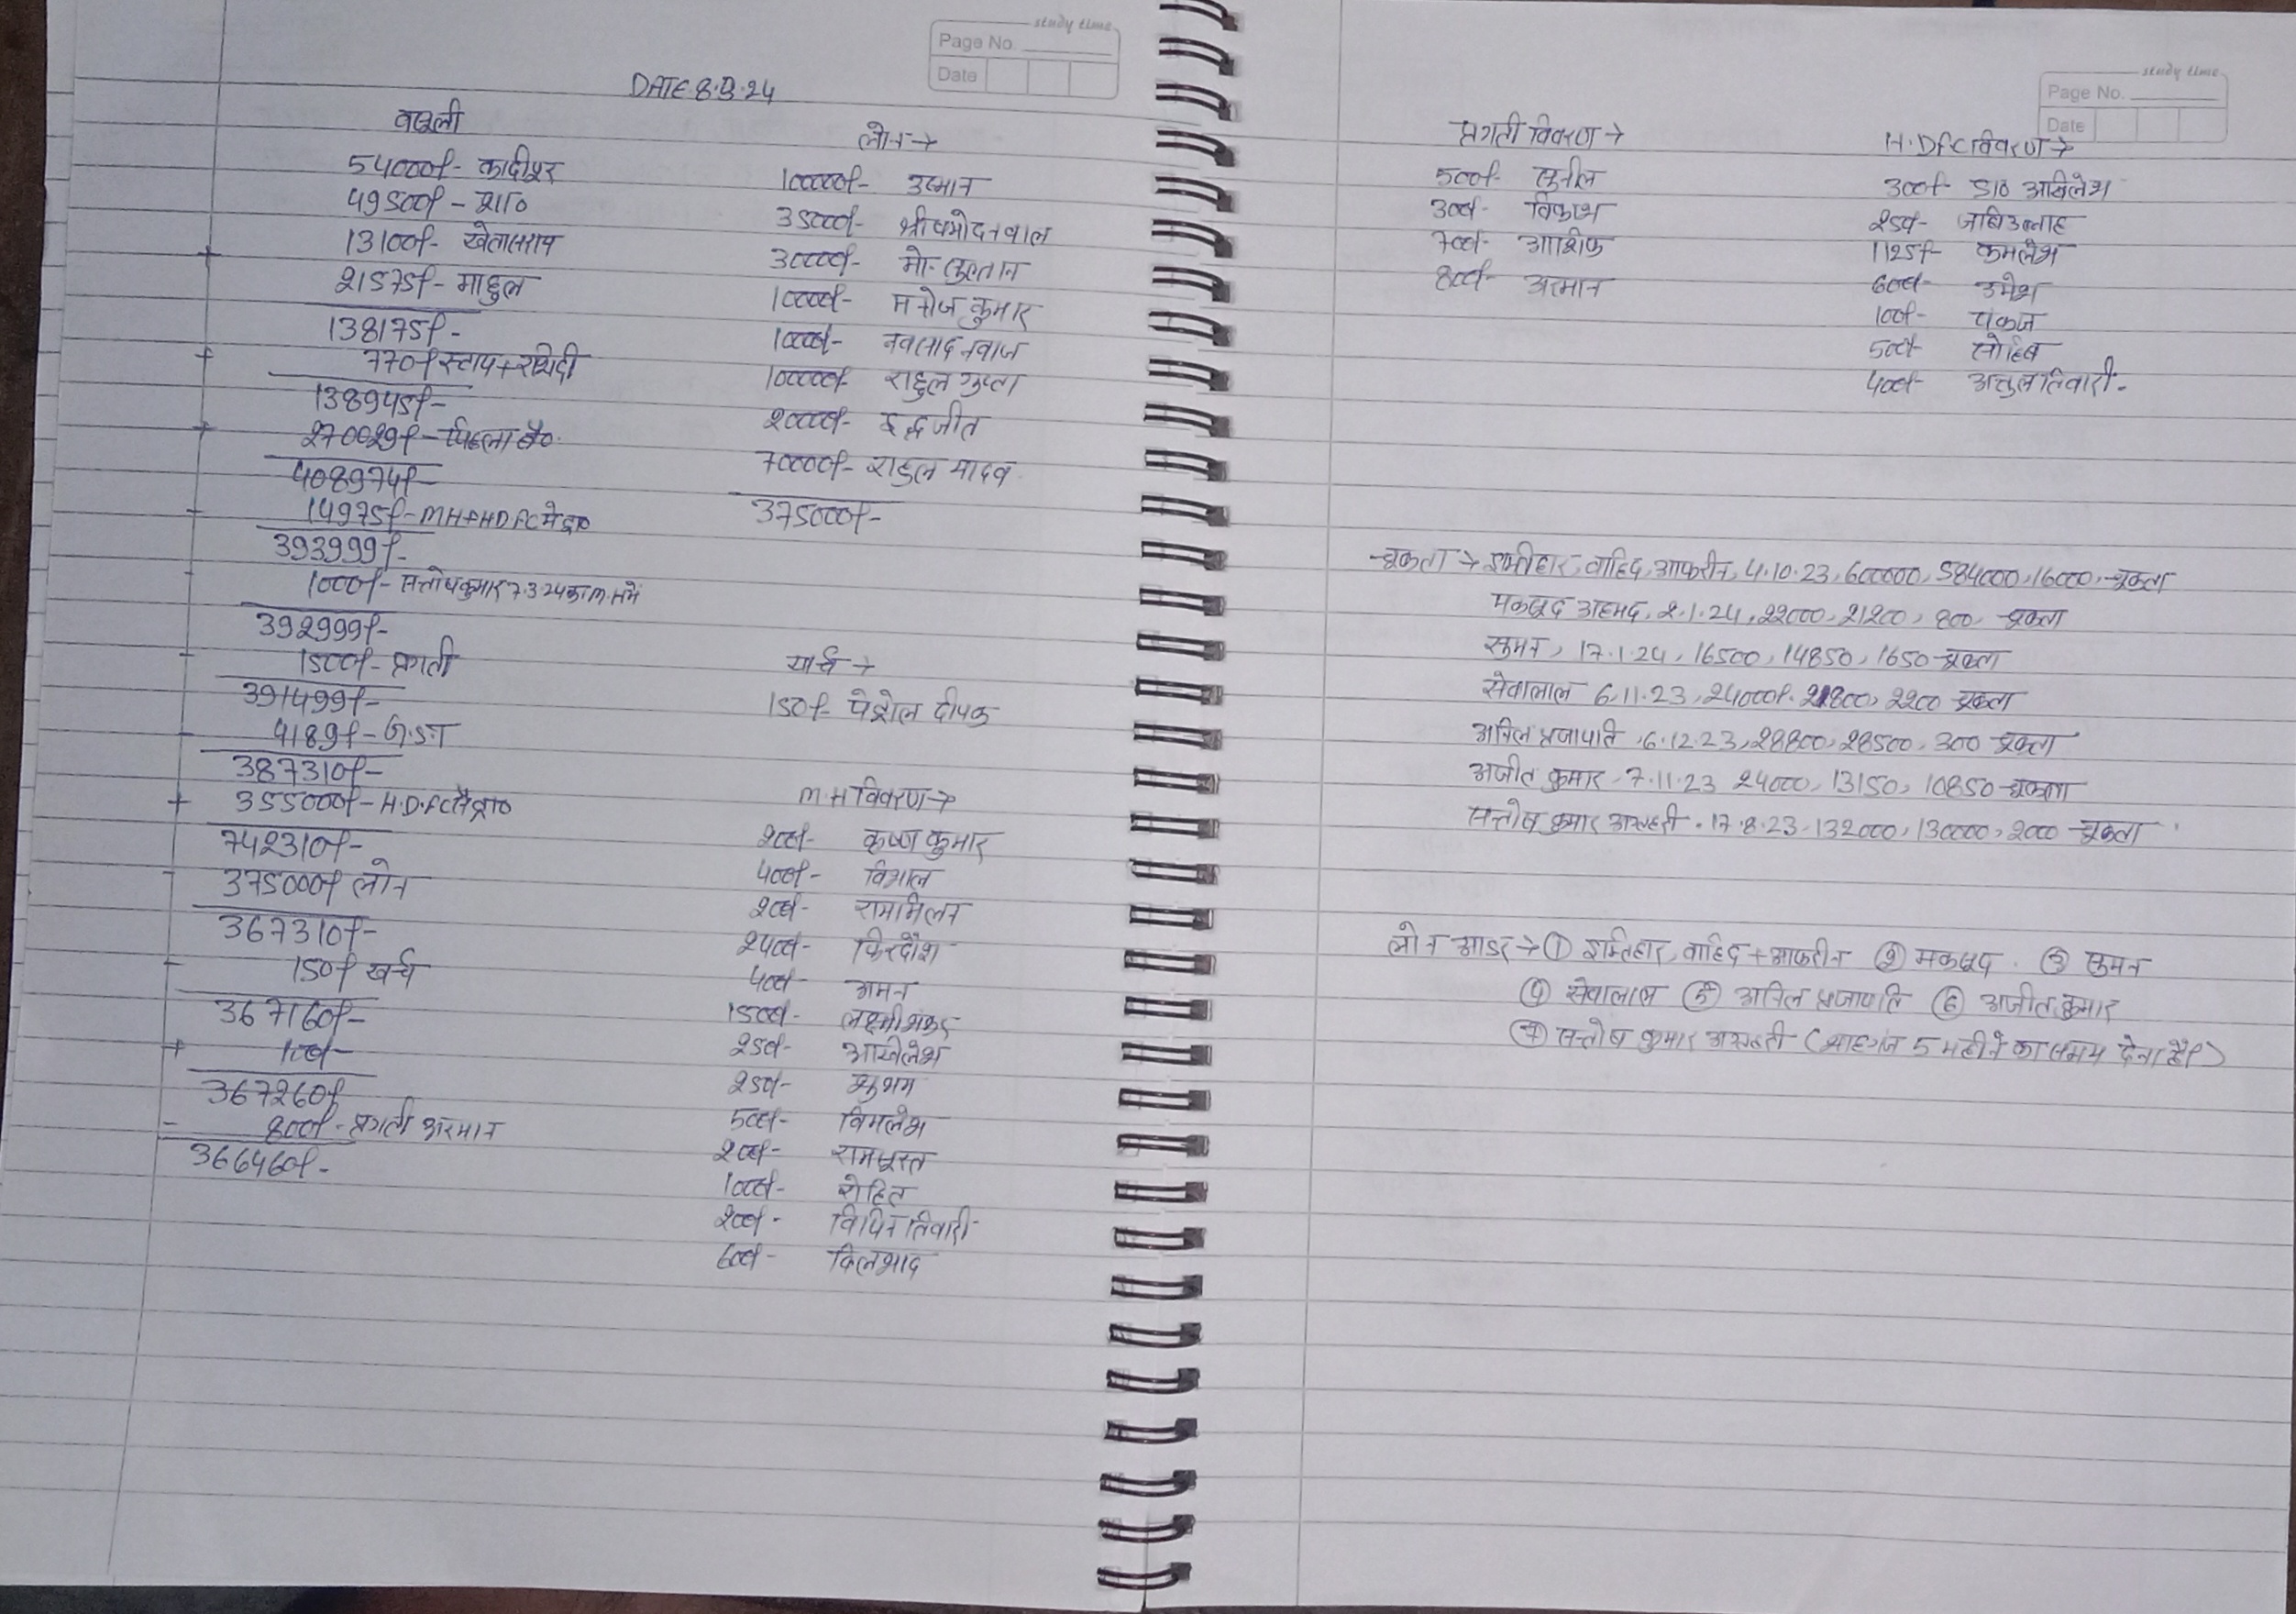 study time
Page No.
Date
DATE 8.3.24
वसूली
54000/- कादीपुर
49500/- शा०
13100/- खेतासराय
+
21575/- माहुल
138175/-
+ 770/ स्टाम्प + रसीदी
138945/-
+ 270029/- पिछला बै०
408974/-
- 14975/- MH+HDFC में ट्रा०
393999/-
- 1000/- सन्तोष कुमार 7.3.24 का M.H में
392999/-
- 1500/- प्रगती
391499/-
- 4189/- G.S.T
387310/-
+ 355000/- H.D.FC से ट्रा०
742310/-
- 375000/ लोन
367310/-
- 150/ खर्च
367160/-
+ 100/-
367260/
- 800/- प्रगती अरमान
366460/-
लोन →
100000/- उस्मान
35000/- श्रीष मोदनवाल
30000/- मो- सुल्तान
10000/- मनोज कुमार
10000/- नवसाद नवाज
100000/- राहुल गुप्ता
20000/- इन्द्रजीत
70000/- राहुल यादव
375000/-
खर्च →
150/- पेट्रोल दीपक
M.H विवरण →
200/- कृष्ण कुमार
400/- विशाल
200/- राममिलन
2400/- फिरदौश
400/- अमन
1500/- लक्ष्मीशंकर
250/- अखिलेश
250/- शुभम
500/- विमलेश
200/- रामसूरत
1000/- रोहित
200/- विपिन तिवारी
600/- दिलशाद
study time
Page No.
Date
प्रगती विवरण →
500/- सुनील
300/- विकाश
700/- आशिफ
800/- अरमान
H.DFC विवरण →
300/- S/O अखिलेश
250/- जबिउल्लाह
1125/- कमलेश
600/- उमेश
100/- पंकज
500/- सोहिब
400/- अतुल तिवारी-
चूकता → इम्तिहार, वाहिद, आफरीन, 4.10.23, 600000, 584000, 16000, चूकता
मकसूद अहमद, 2.1.24, 22000, 21200, 800, चूकता
सुमन, 17.1.24, 16500, 14850, 1650 चूकता
सेवालाल 6.11.23, 24000/- 21800, 2200 चूकता
अनिल प्रजापति, 6.12.23, 28800, 28500, 300 चूकता
अजीत कुमार, 7.11.23 24000, 13150, 10850 चूकता
सन्तोष कुमार अग्रहरी. 17.8.23, 132000, 130000, 2000 चूकता
लोन आडर → ① इम्तिहार, वाहिद + आफरीन ② मकसूद. ③ सुमन
④ सेवालाल ⑤ अनिल प्रजापति ⑥ अजीत कुमार
⑦ सन्तोष कुमार अग्रहरी (शाहगंज 5 महीने का समय देना है।)